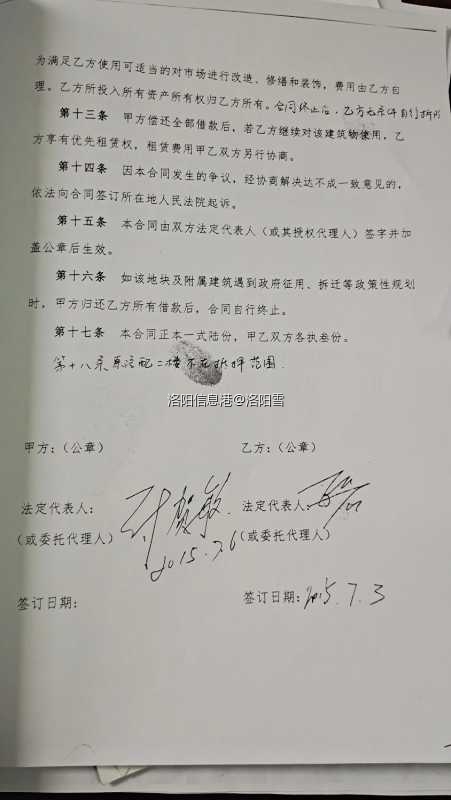 为满足乙方使用可适当的对市场进行改造、修缮和装饰，费用由乙方自
理。乙方所投入所有资产所有权归乙方所有。合同终止后，乙方无条件自行拆除
第十三条 甲方偿还全部借款后，若乙方继续对该建筑物使用，乙
方享有优先租赁权，租赁费用甲乙双方另行协商。
第十四条 因本合同发生的争议，经协商解决达不成一致意见的，
依法向合同签订所在地人民法院起诉。
第十五条 本合同由双方法定代表人（或其授权代理人）签字并加
盖公章后生效。
第十六条 如该地块及附属建筑遇到政府征用、拆迁等政策性规划
时，甲方归还乙方所有借款后，合同自行终止。
第十七条 本合同正本一式陆份，甲乙双方各执叁份。
第十八条 二楼不在拆押范围.
洛阳信息港@洛阳雪
甲方：（公章） 乙方：（公章）
法定代表人： 法定代表人：
（或委托代理人） （或委托代理人）
2015.7.6
签订日期： 签订日期：2015.7.3